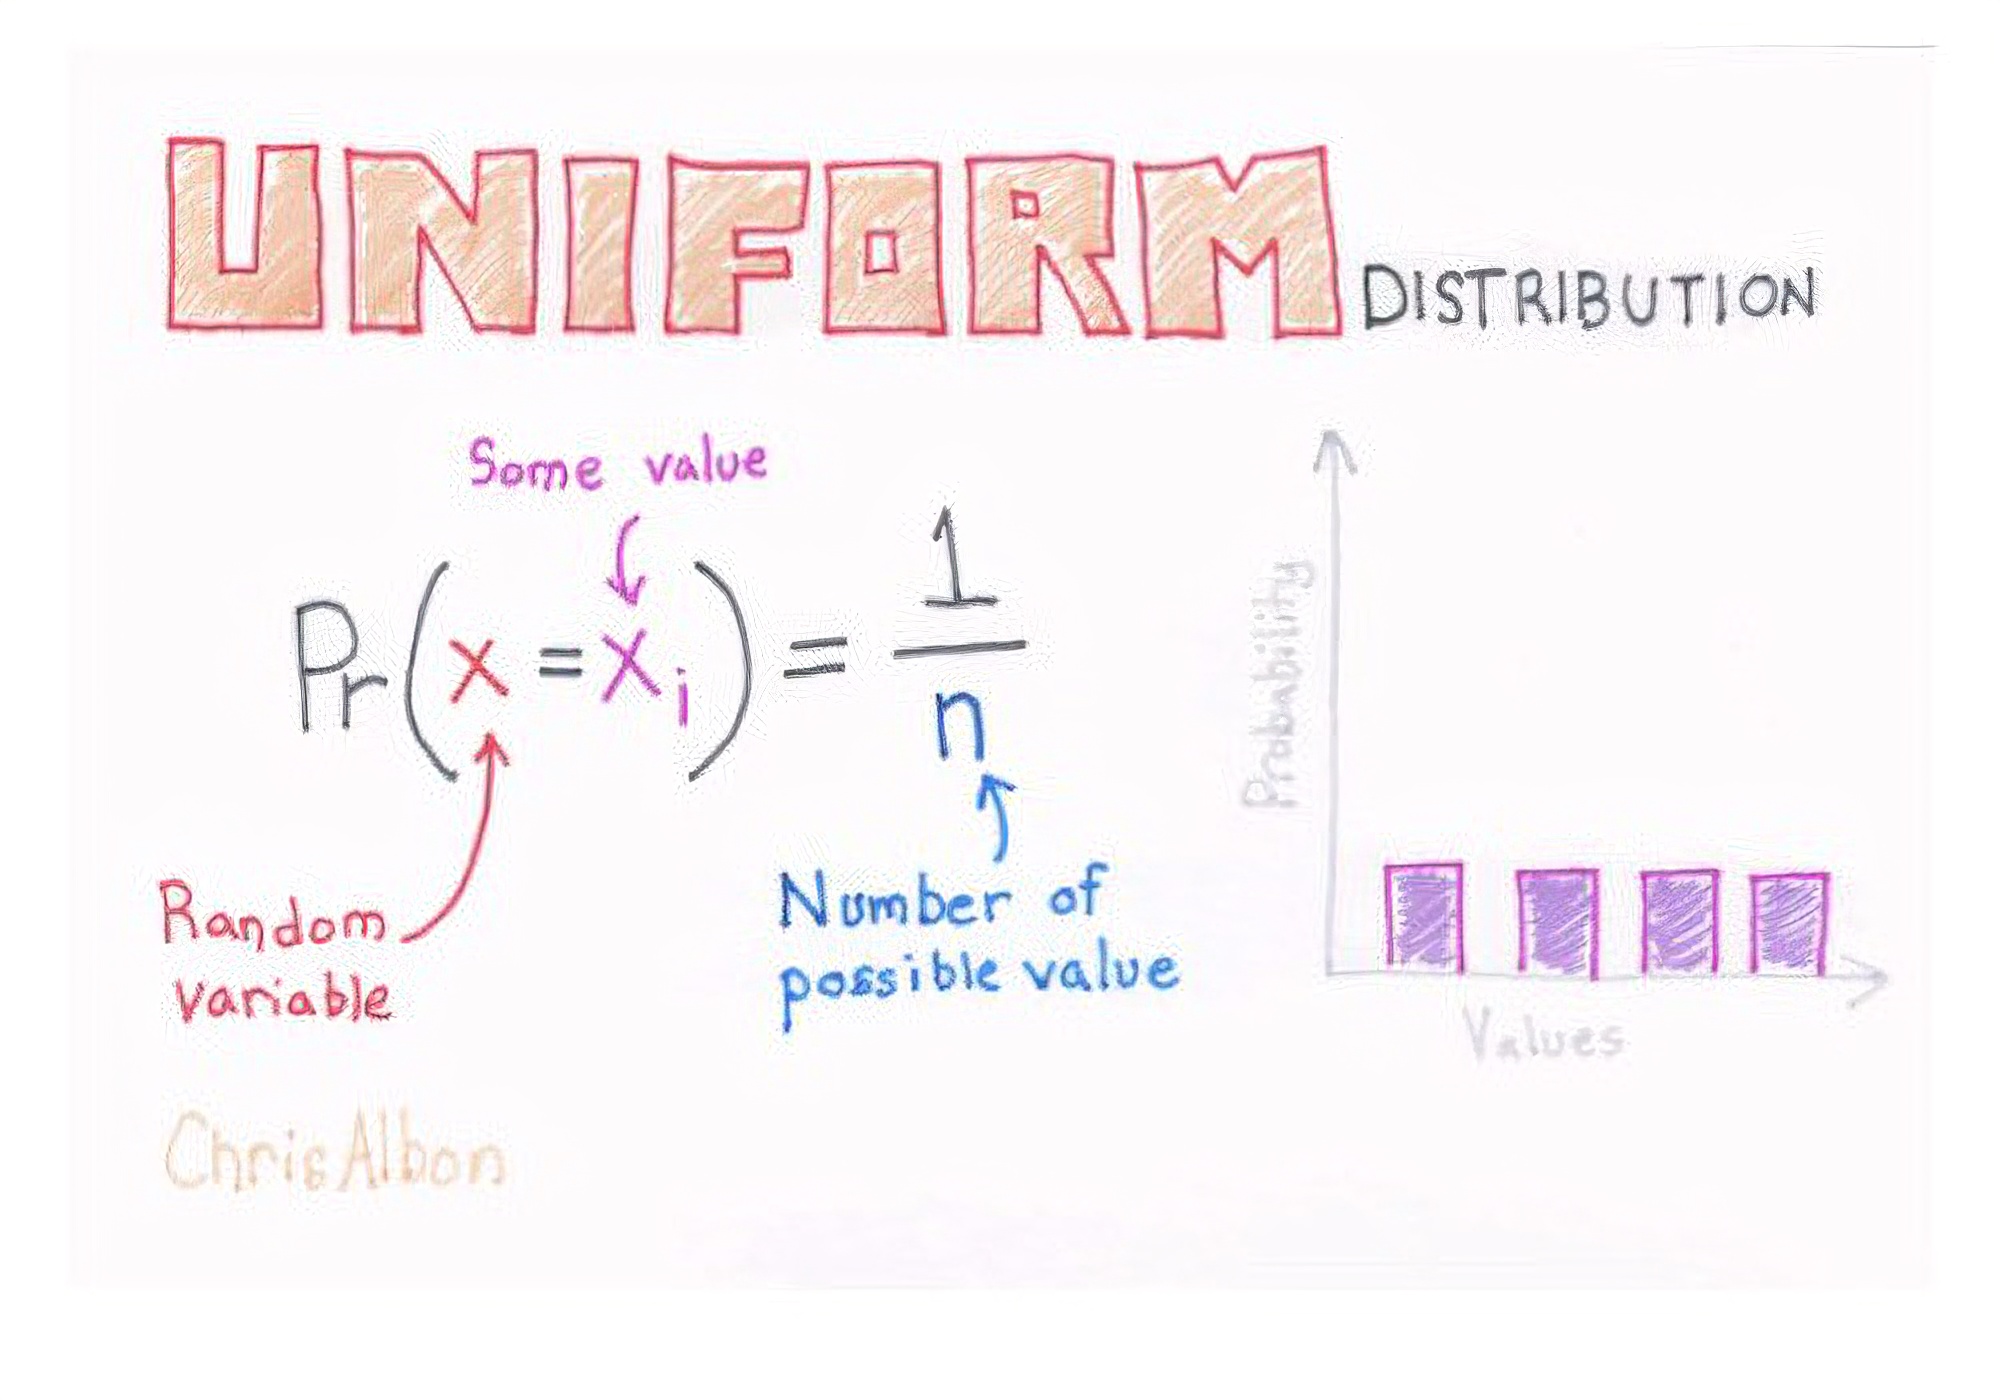 UNIFORM DISTRIBUTION
Some value
Pr(x = xi) = 1/n
Random
variable
Number of
possible value
Probability
Values
ChrisAlbon